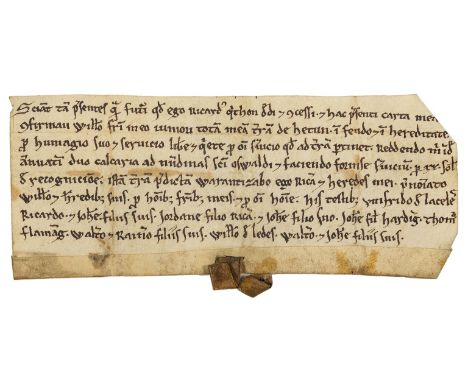 Sciant tā p̄sentes q̄ fut̄i qd ego Ricard' dedi ⁊ ꝯcessi ⁊ hac p̄senti carta mea
ꝯfirmaui Willō fr̄i meo iuniori totā meā t̄rā de hetun in feudo ⁊ hereditate
p̄ humagio suo ⁊ seruicio libe ⁊ q̄ete p̄ oī suicio qd ad t̄rā p̄tinet. Reddendo m̄
annuatī duo calcaria ad nūdinas sc̄i oswaldi ⁊ faciendo forinse s̄uiciū. p̄ xx. sol
d recognicioē. istā t̄rā p̄dictā Warantizabo ego Ric̄ ⁊ heredes mei. p̄noīato
Willō ⁊ hredib; suis. p̄ hōib; meis ⁊ p̄ oī hōīe. His testib; vnfrido d lacel
Ricardo. ⁊ Johē. filiis suis. Jordane filio Ric̄. ⁊ Johē filio suo. Johē fil hardig. thom̄
flamāg. Walto. ⁊ Rann̄o filiis suis. Willō d ledes. Walto. ⁊ Johē filiis suis.